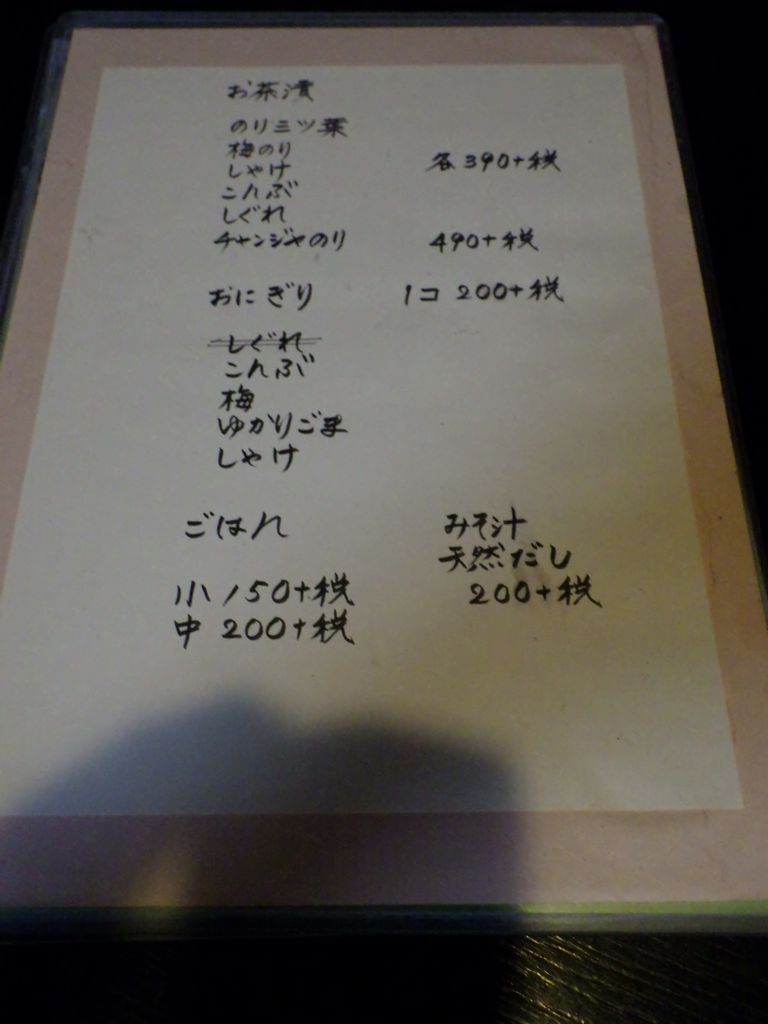 お茶漬
のり三ツ葉
梅のり
しゃけ 各390+税
こんぶ
しぐれ
チャンジャのり 490+税
おにぎり 1コ 200+税
しぐれ
こんぶ
梅
ゆかりごま
しゃけ
ごはん
小 150+税
中 200+税
みそ汁
天然だし
200+税